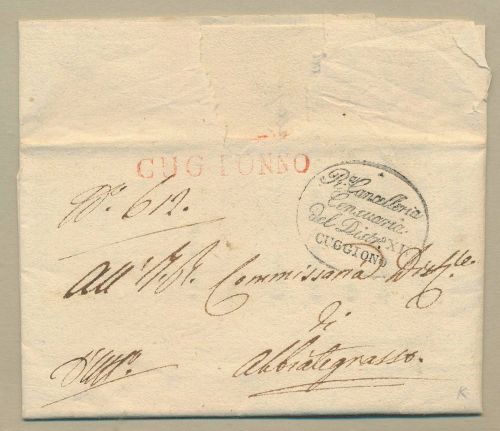 CUGIONNO
Rle. Cancelleria
Censuaria
del Distto. XIV
CUGGIONO
No. 612.
All' I. R. Commissaria Distle.
di
Abbiategrasso.
D'Uffo.
K